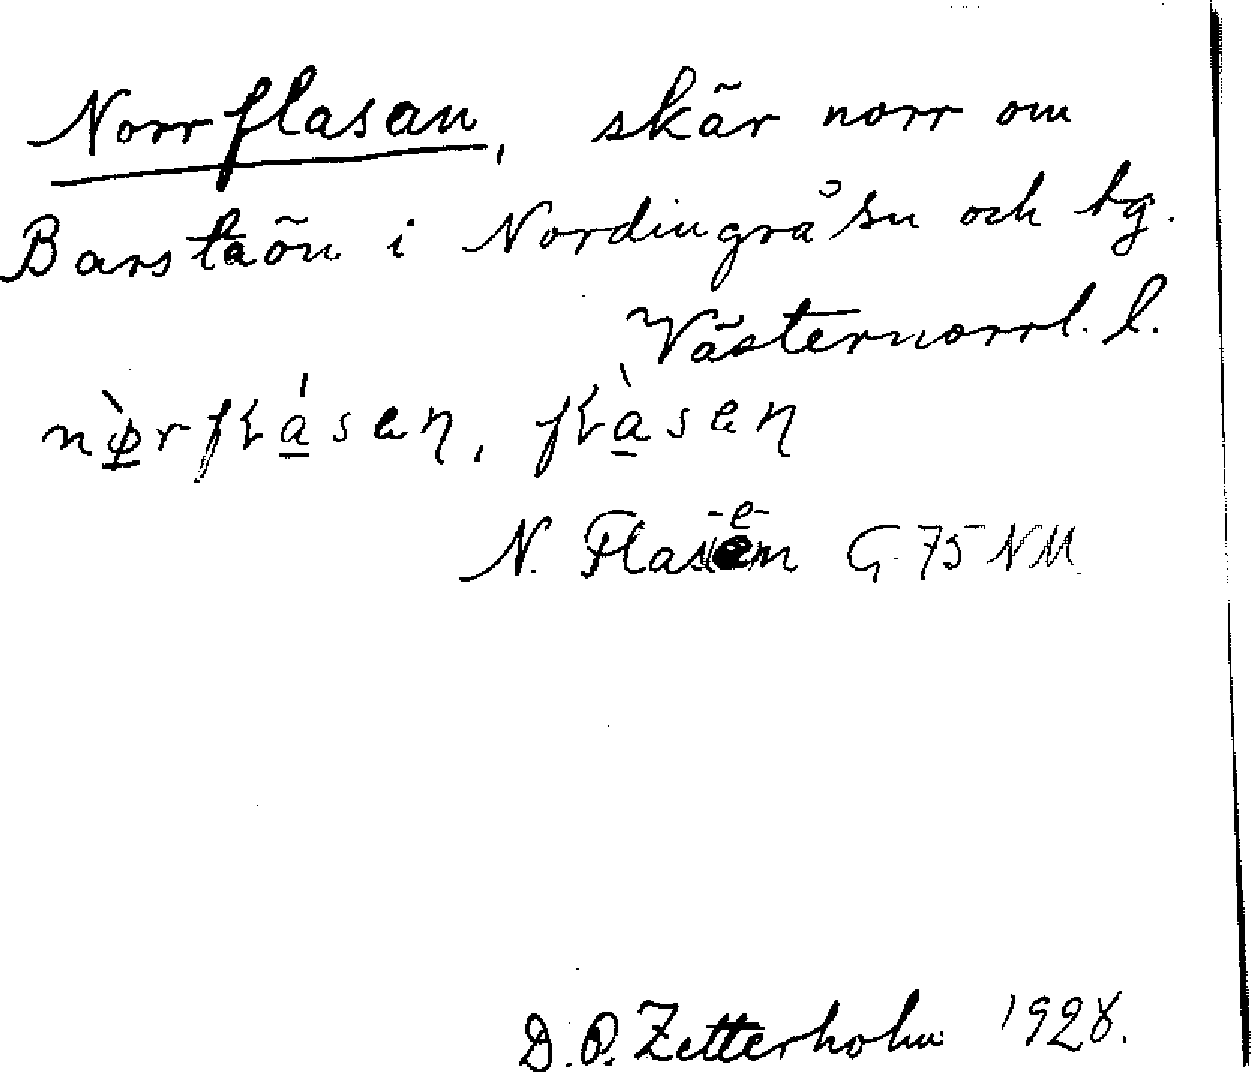 Norrflasan, skär norr om
Barstaön i Nordingrå sn och tg.
Västernorrl. l.
nø̀rfɫásen, fɫàsen
N. Flasen G. 75 NM
D. O. Zetterholm 1928.